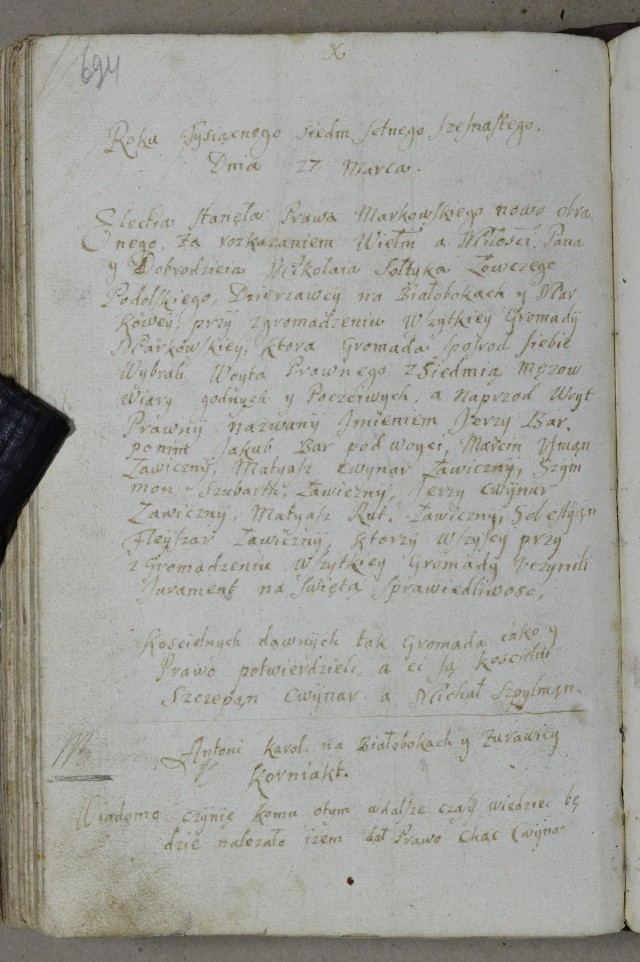 694
X
Roku Tysiącnego siedm setnego szesnastego.
Dnia 27 Marca.
Electia stanęła Prawa Markowskiego nowo obra
nego, za rozkazaniem Wielm a Miłości Pana
y Dobrodzieia Mikołaia Sołtyka Łowczego
Podolskiego, Dzierzawcy na Białobokach y Mar
kowey, przy zgromadzeniu Wszytkiey Gromady
Markowskiey, ktora Gromada sposrod siebie
Wybrali Woyta Prawnego z Siedmią męzow
wiary godnych y Poczciwych, a Naprzod Woyt
Prawny nazwany Jmieniem Jerzy Bar.
Jakub Bar podwoyci, Marcin Vlman
Zawiczny, Matyasz Cwynar Zawiczny, Szym
mon Szubartt, Zawiczny, Jerzy Cwynar
Zawiczny, Matyasz Rut. Zawiczny, Sobestyan
Fleyszar Zawiczny, ktorzy Wszyscy przy
zGromadzeniu Wszytkiey Gromady Vczynili
Jurament na Swiętą Sprawiedliwosc,
Koscielnych dawnych tak Gromada iako y
Prawo potwierdzieli, a ci są Koscielni
Szczepąn Cwynar a Michał Szpylman.
Antoni Karol. na Białobokach y Zurawicy
Korniakt.
Wiadomo czynię komu otym wdalsze czasy wiedziec bę
dzie nalezało izem dał Prawo Chac Cwyna